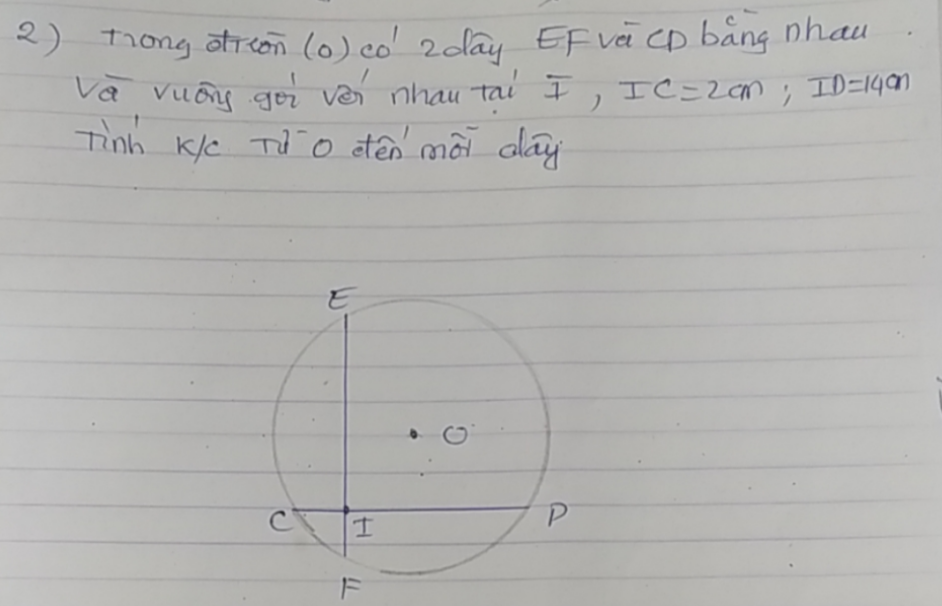 2) Trong đtròn (O) có 2 dây EF và CD bằng nhau.
Và vuông gói với nhau tại I, IC=2cm; ID=14cm
Tính k/c Từ O đến mỗi dây
E
O
C I D
F